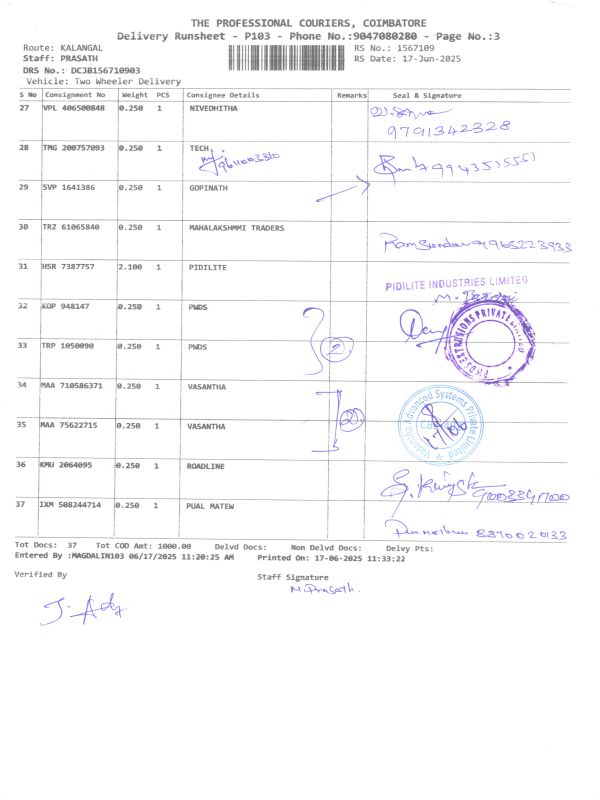 THE PROFESSIONAL COURIERS, COIMBATORE
Delivery Runsheet - P103 - Phone No.:9047080280 - Page No.:3
Route: KALANGAL
RS No.: 1567109
Staff: PRASATH
RS Date: 17-Jun-2025
DRS No.: DCJB156710903
Vehicle: Two Wheeler Delivery
S No Consignment No Weight PCS Consignee Details Remarks Seal & Signature
27 VPL 406500848 0.250 1 NIVEDHITHA
9791342328
28 TMG 200757093 0.250 1 TECH
29 SVP 1641386 0.250 1 GOPINATH
30 TRZ 61065840 0.250 1 MAHALAKSHMMI TRADERS
31 HSR 7387757 2.100 1 PIDILITE
PIDILITE INDUSTRIES LIMITED
32 KOP 948147 0.250 1 PWDS
33 TRP 1050090 0.250 1 PWDS
2
34 MAA 710586371 0.250 1 VASANTHA
Vasantha Advanced Systems Private Limited
35 MAA 75622715 0.250 1 VASANTHA
36 KMU 2064095 0.250 1 ROADLINE
37 IXM 508244714 0.250 1 PUAL MATEW
8870020133
Tot Docs: 37 Tot COD Amt: 1000.00 Delvd Docs: Non Delvd Docs: Delvy Pts:
Entered By :MAGDALIN103 06/17/2025 11:20:25 AM Printed On: 17-06-2025 11:33:22
Verified By
Staff Signature
M.Prasath.